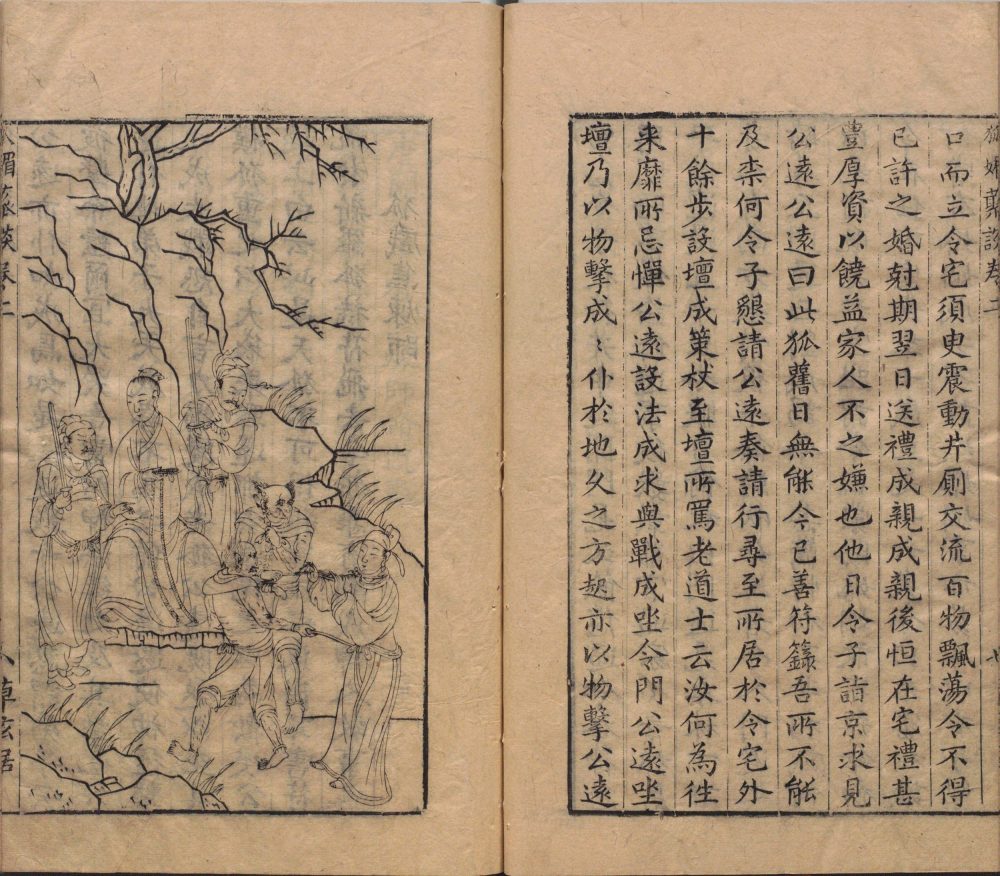 狐媚叢談卷二
七
口而立令宅須臾震動井厠交流百物飄蕩令不得
已許之婚尅期翌日送禮成親成親後恒在宅禮甚
豊厚資以饒益家人不之嫌也他日令子詣京求見
公遠公遠曰此狐舊日無能今已善符籙吾所不能
及柰何令子懇請公遠奏請行尋至所居於令宅外
十餘步設壇成策杖至壇所罵老道士云汝何為徃
来靡所忌憚公遠設法成求與戰成坐令門公遠坐
壇乃以物擊成〻仆於地久之方起亦以物擊公遠
狐媚叢談卷二
八
草玄居